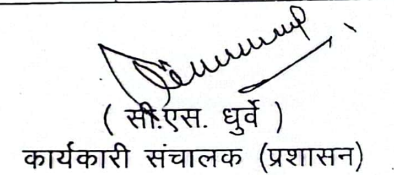 ( सी.एस. धुर्वे )
कार्यकारी संचालक (प्रशासन)